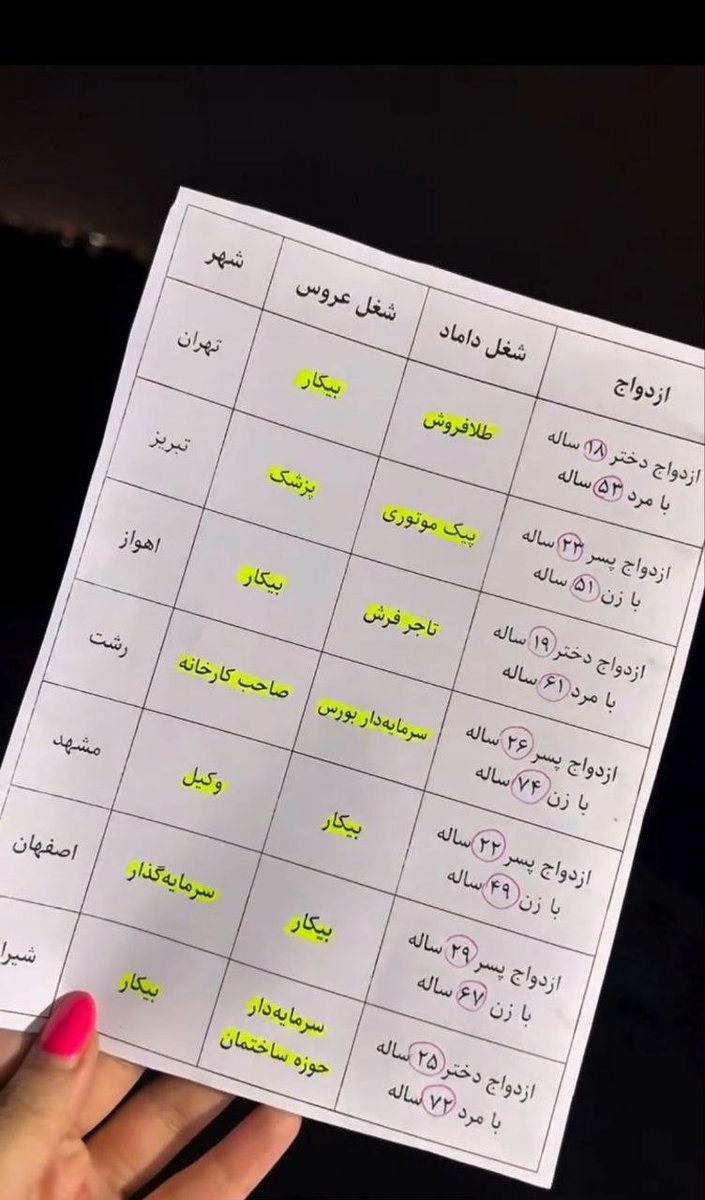 ازدواج
شغل داماد
شغل عروس
شهر
ازدواج دختر ۱۸ ساله
با مرد ۵۳ ساله
طلافروش
بیکار
تهران
ازدواج پسر ۲۳ ساله
با زن ۵۱ ساله
پیک موتوری
پزشک
تبریز
ازدواج دختر ۱۹ ساله
با مرد ۶۱ ساله
تاجر فرش
بیکار
اهواز
ازدواج پسر ۲۶ ساله
با زن ۷۴ ساله
سرمایه‌دار بورس
صاحب کارخانه
رشت
ازدواج پسر ۲۲ ساله
با زن ۴۹ ساله
بیکار
وکیل
مشهد
ازدواج پسر ۲۹ ساله
با زن ۶۷ ساله
بیکار
سرمایه‌گذار
اصفهان
ازدواج دختر ۲۵ ساله
با مرد ۷۲ ساله
سرمایه‌دار
حوزه ساختمان
بیکار
شیرا